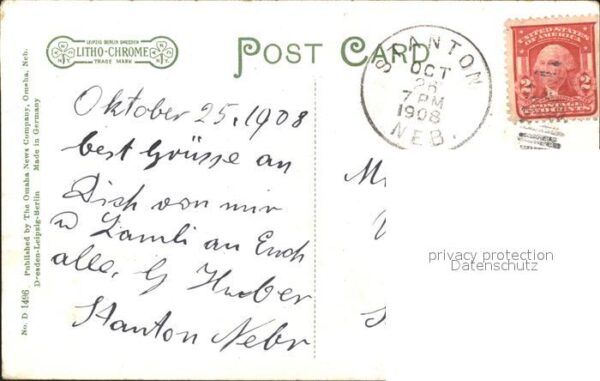 LEIPZIG BERLIN DRESDEN
LITHO-CHROME
TRADE MARK
POST CARD
No. D 1496 Published by The Omaha News Company, Omaha, Neb.
Dresden-Leipzig-Berlin Made in Germany
STANTON
OCT
26
7 PM
1908
NEB.
UNITED STATES
OF AMERICA
2 2
POSTAGE
TWO CENTS
Oktober 25, 1908
best Grüsse an
Dich von mir
u Familie an Euch
alle, G Huber
Stanton Nebr
privacy protection
Datenschutz